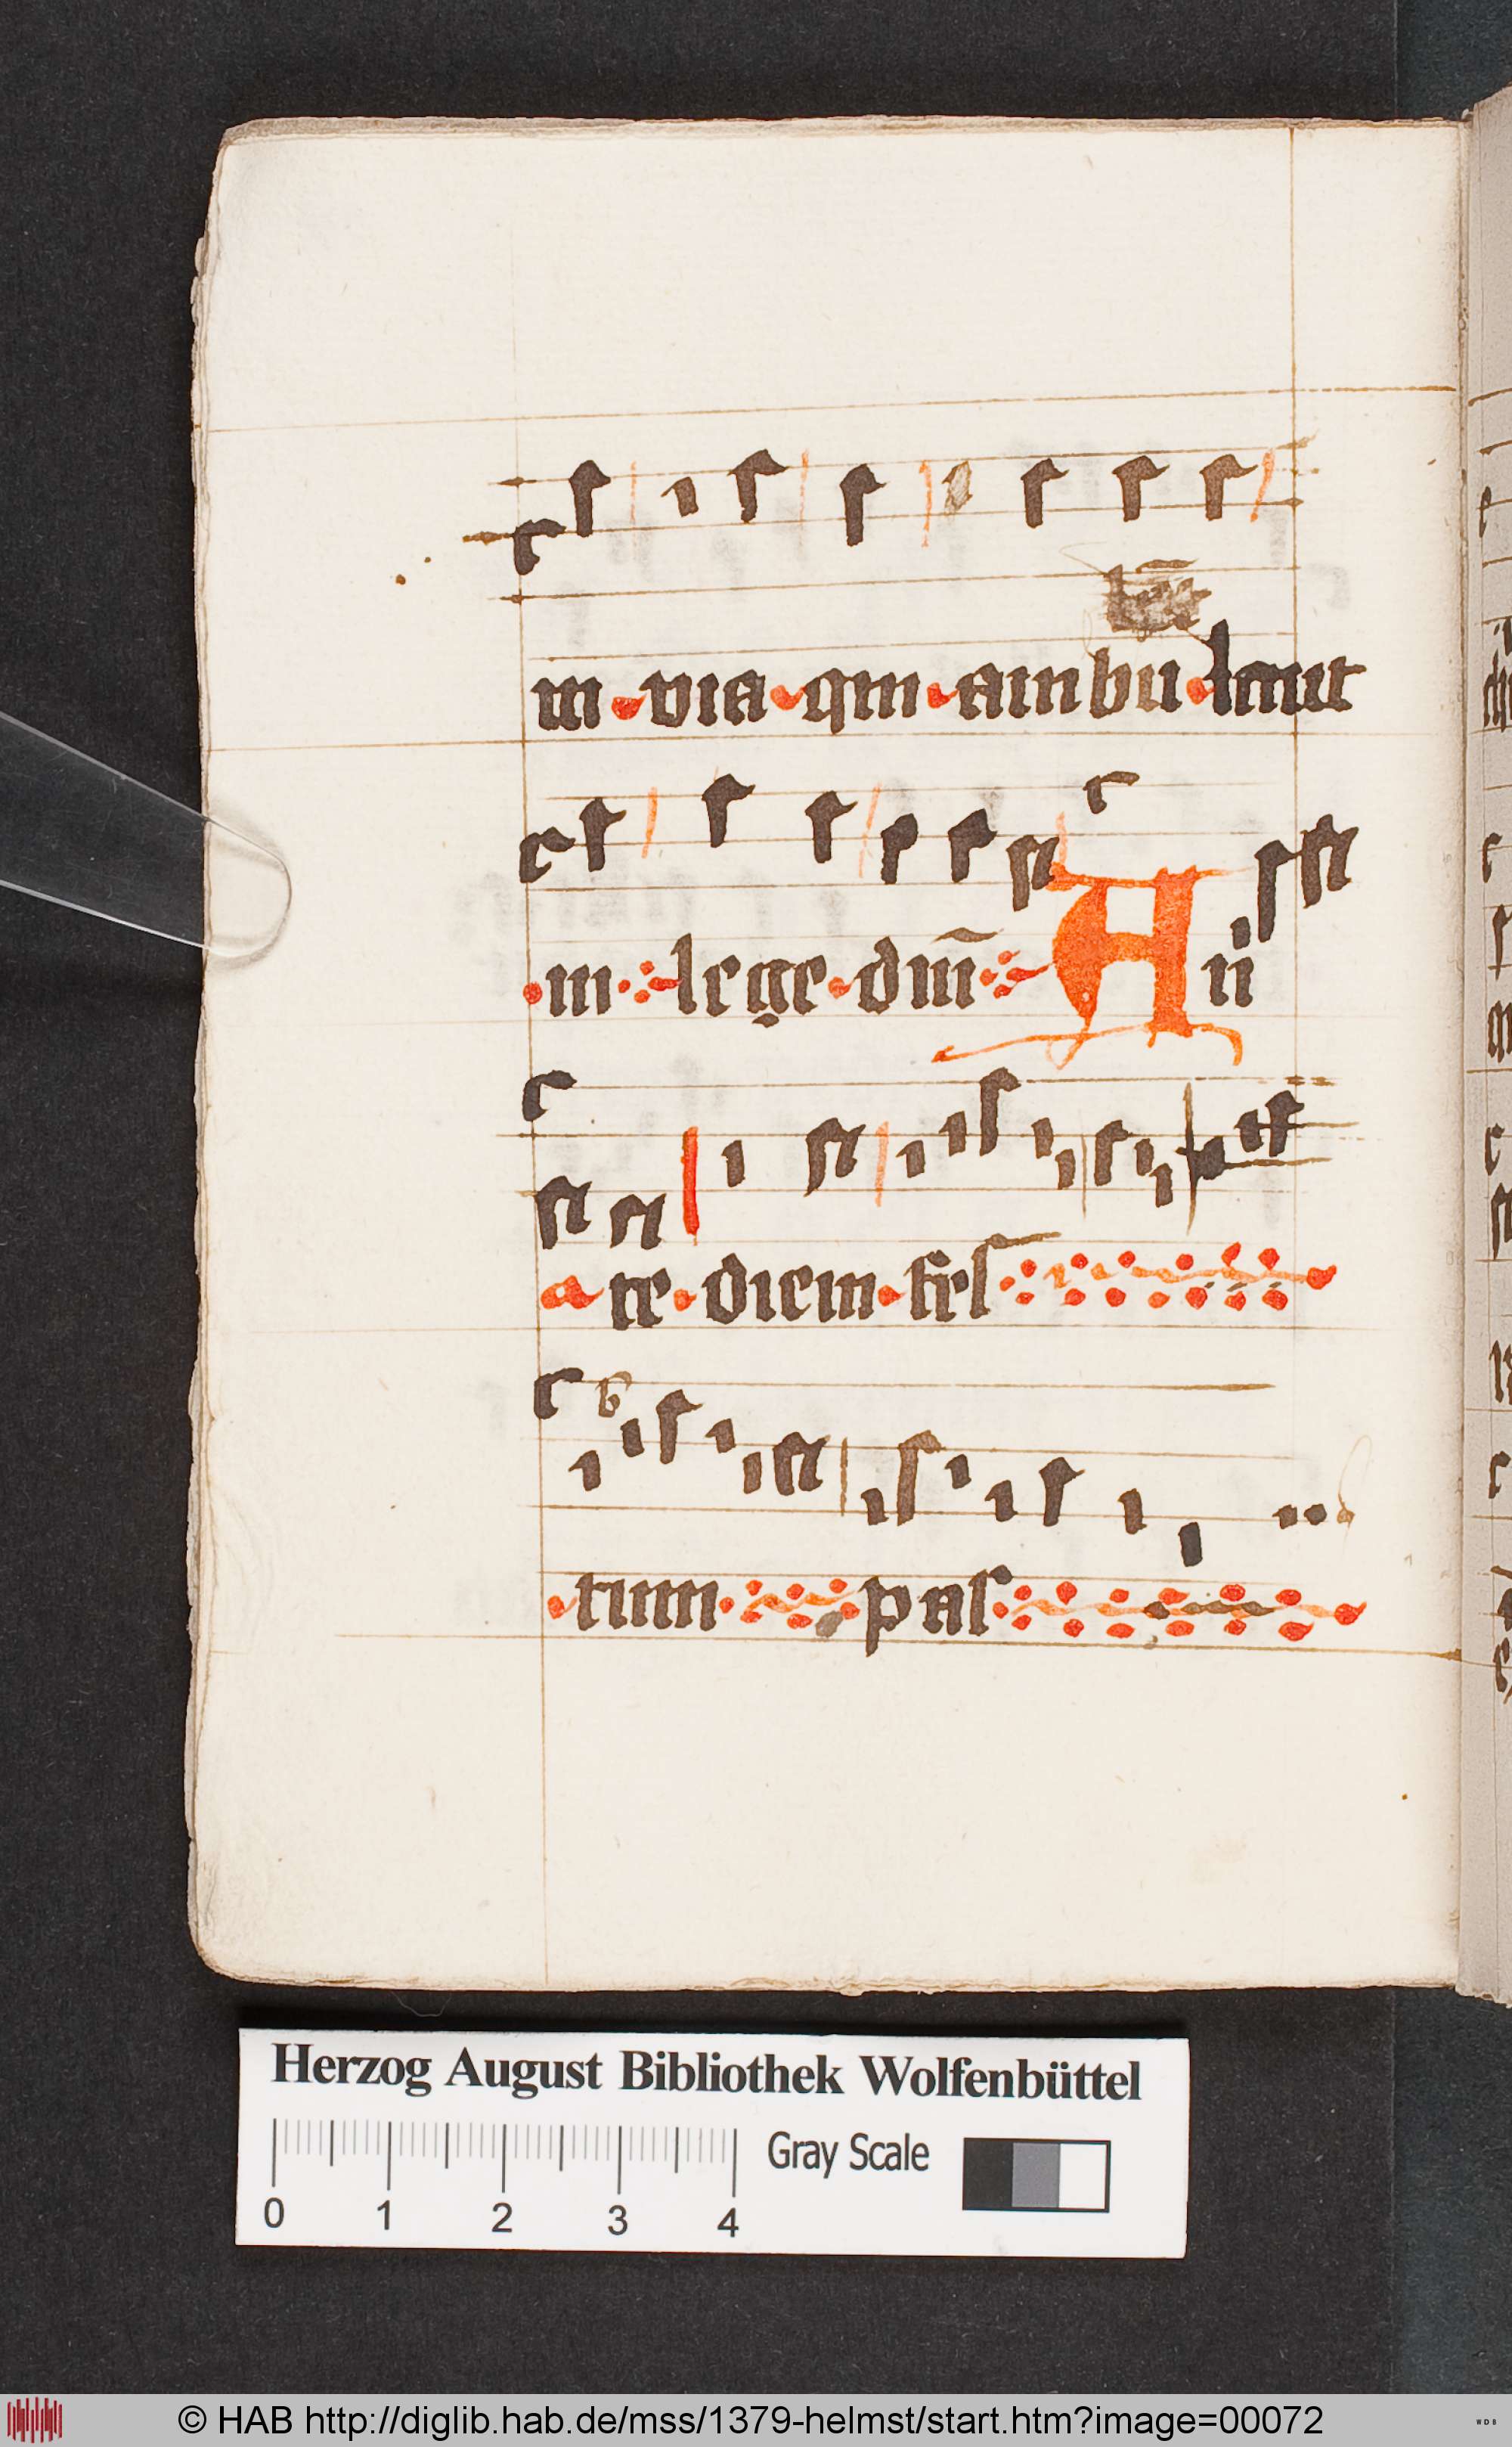 in via qui ambu lant
in lege dnī An
a te diem fes
tum pas
Herzog August Bibliothek Wolfenbüttel
Gray Scale
0 1 2 3 4
© HAB http://diglib.hab.de/mss/1379-helmst/start.htm?image=00072